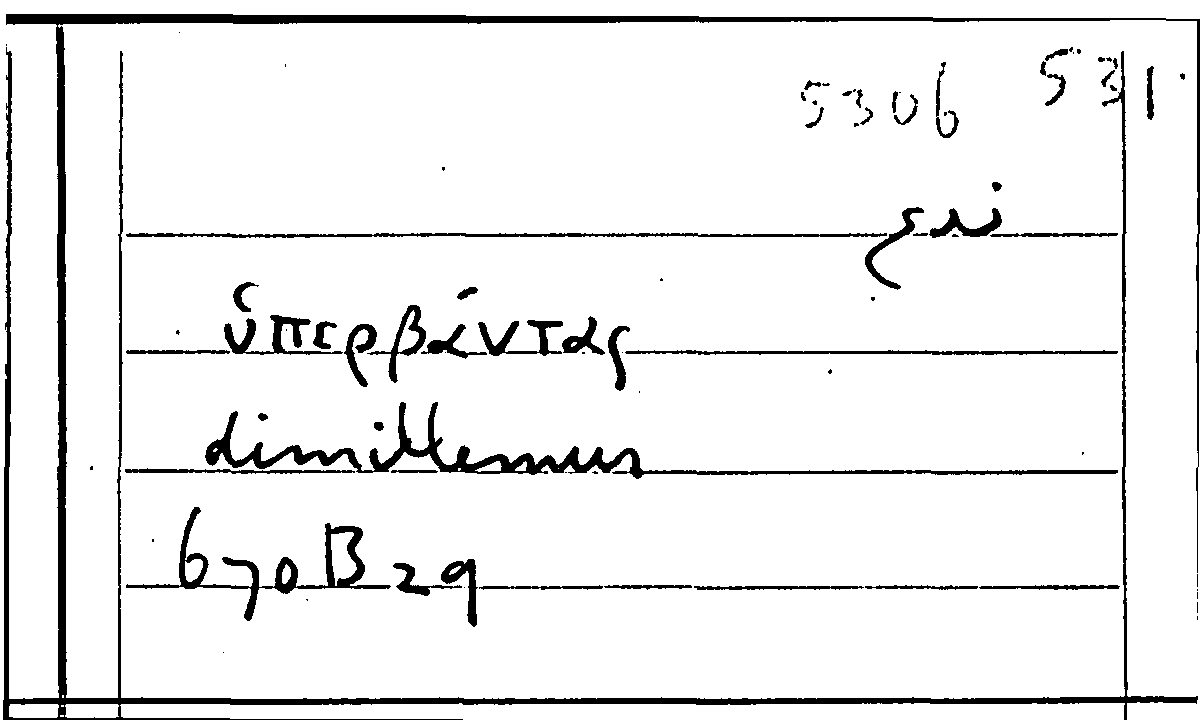 5306 531
ὑπερβάντας
dimittemus
670B29